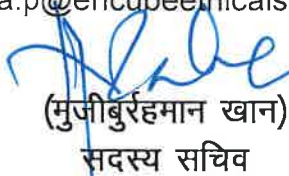 a.p@encubeethicals
(मुजीबुर्रहमान खान)
सदस्य सचिव